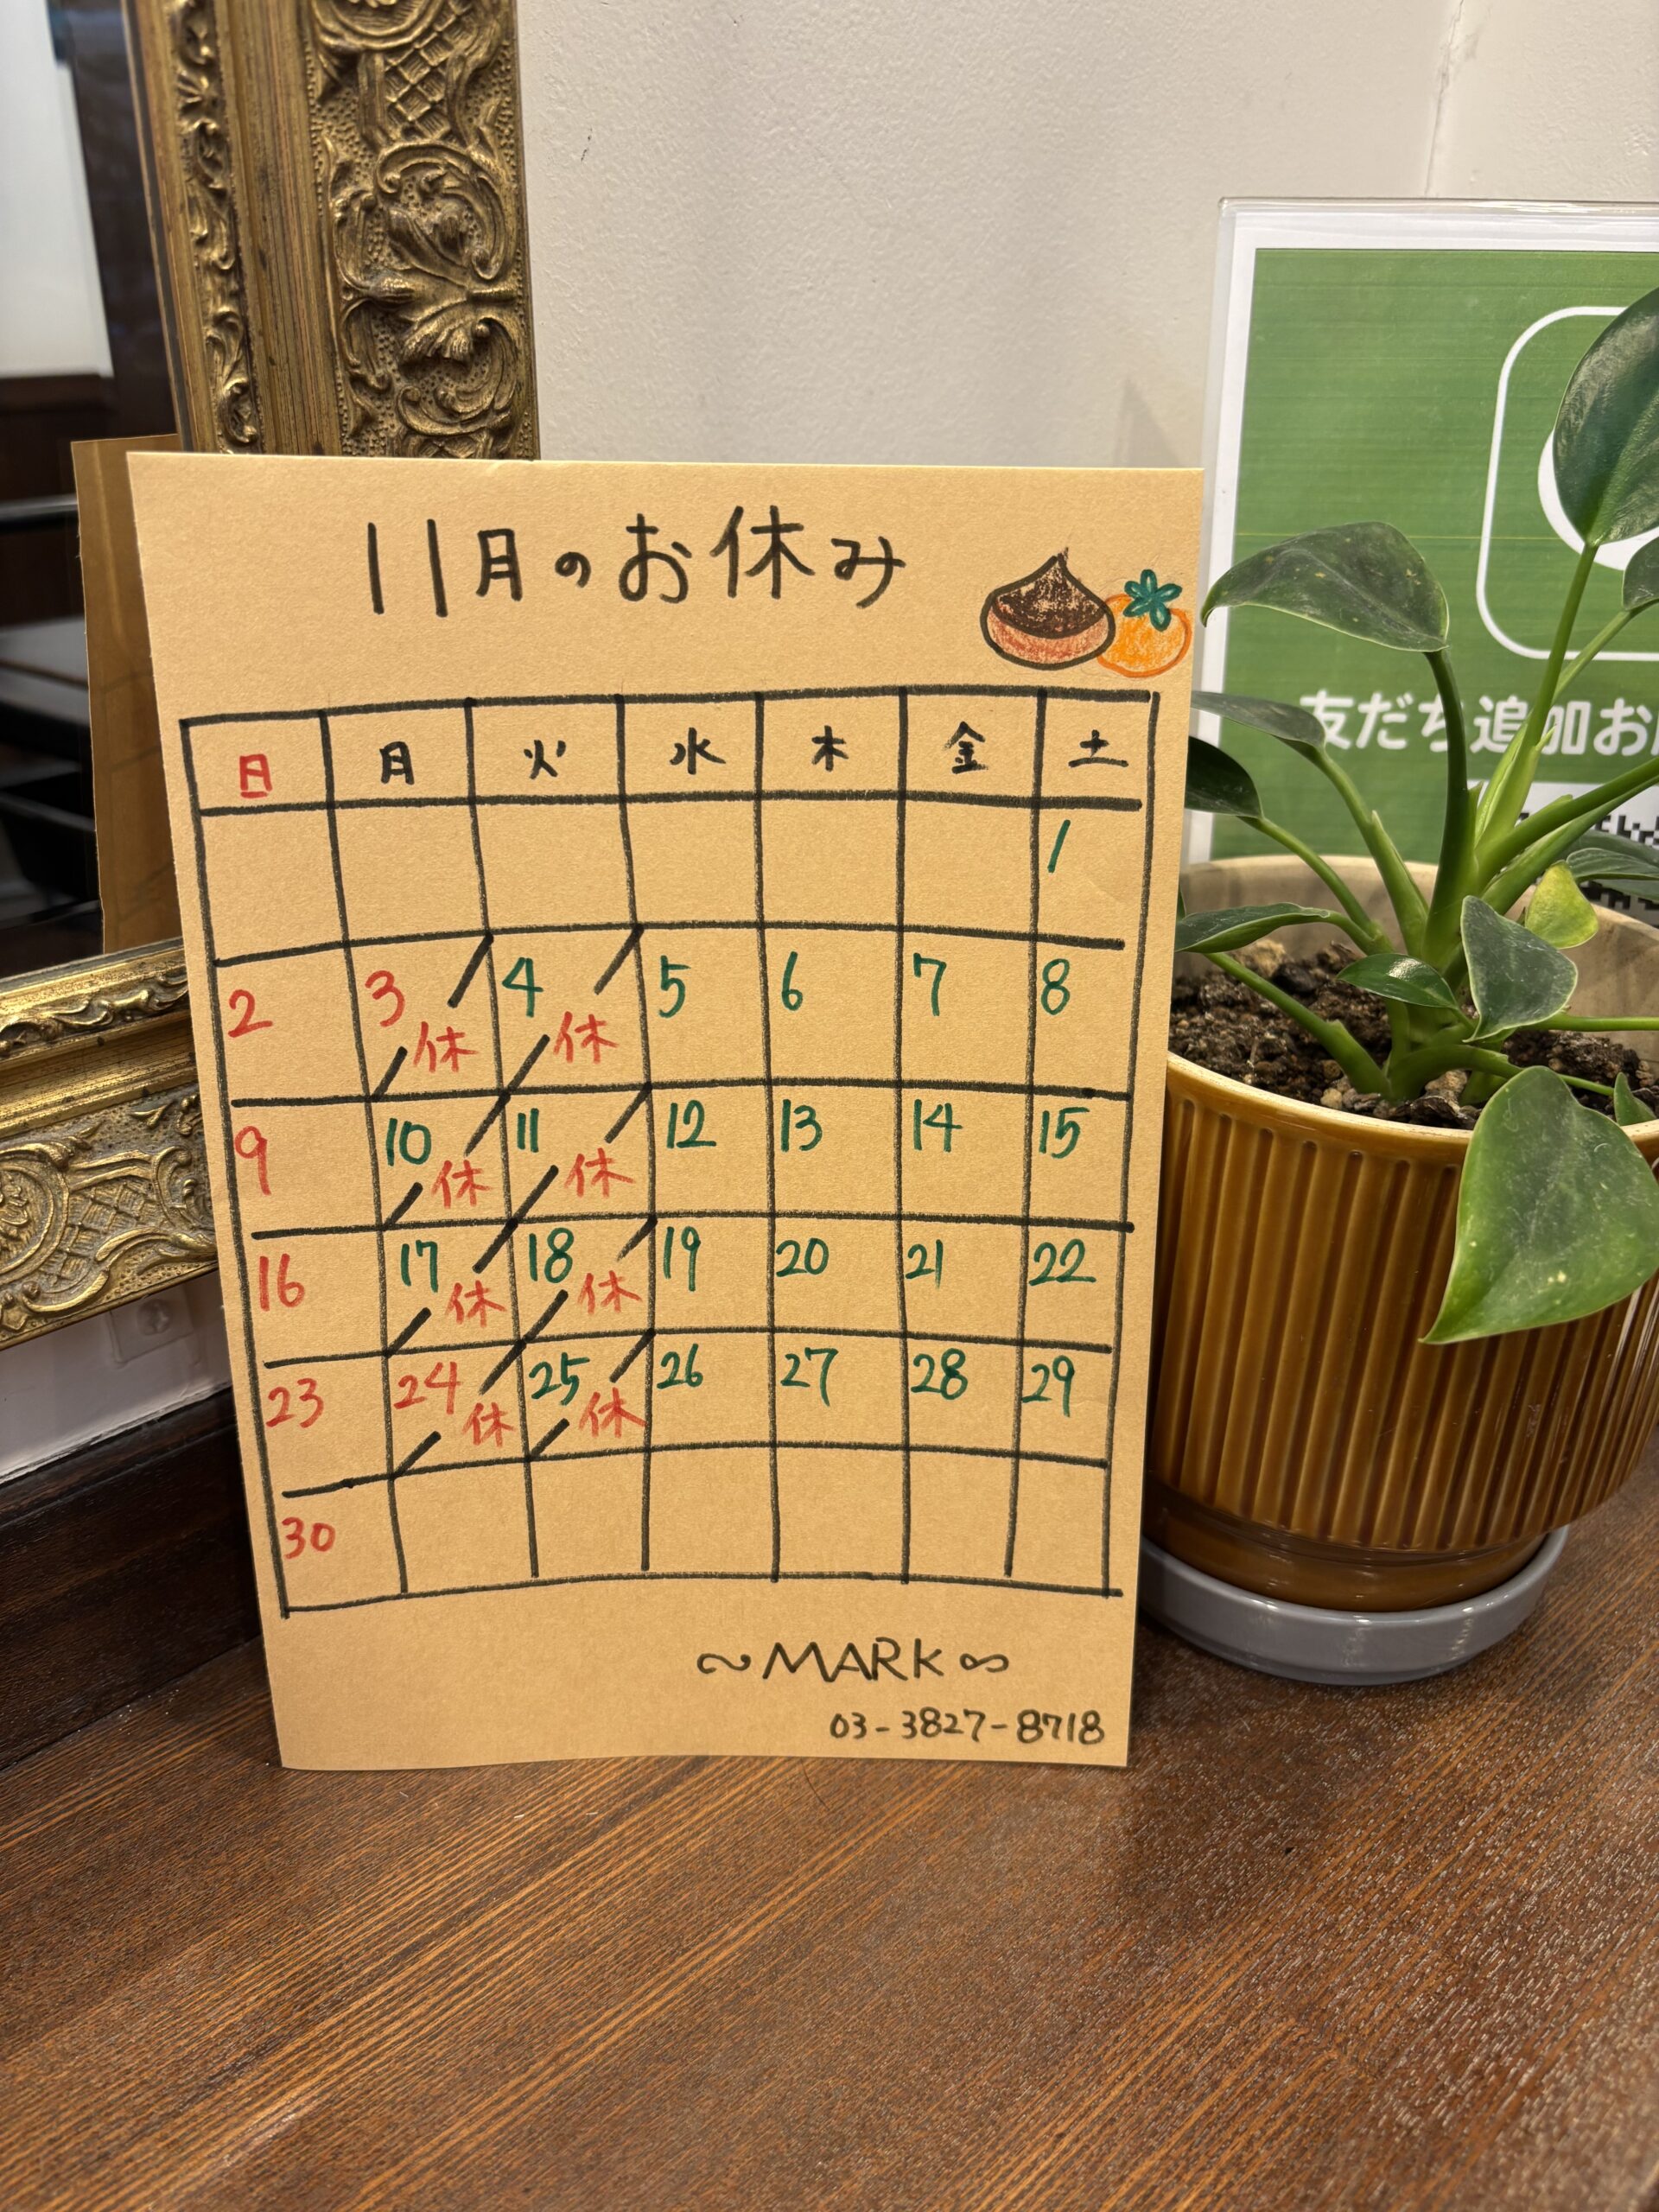 11月のお休み
日 月 火 水 木 金 土
1
2 3 休 4 休 5 6 7 8
9 10 休 11 休 12 13 14 15
16 17 休 18 休 19 20 21 22
23 24 休 25 休 26 27 28 29
30
~MARK~
03-3827-8718
友だち追加お